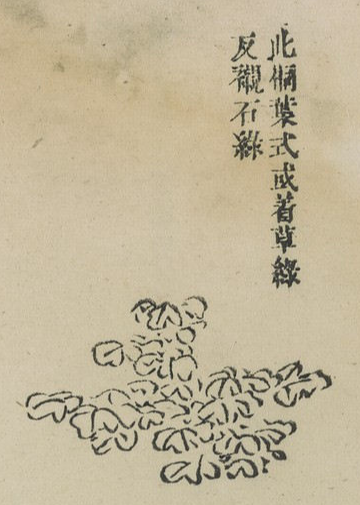 此桐葉式或着草綠
反襯石綠